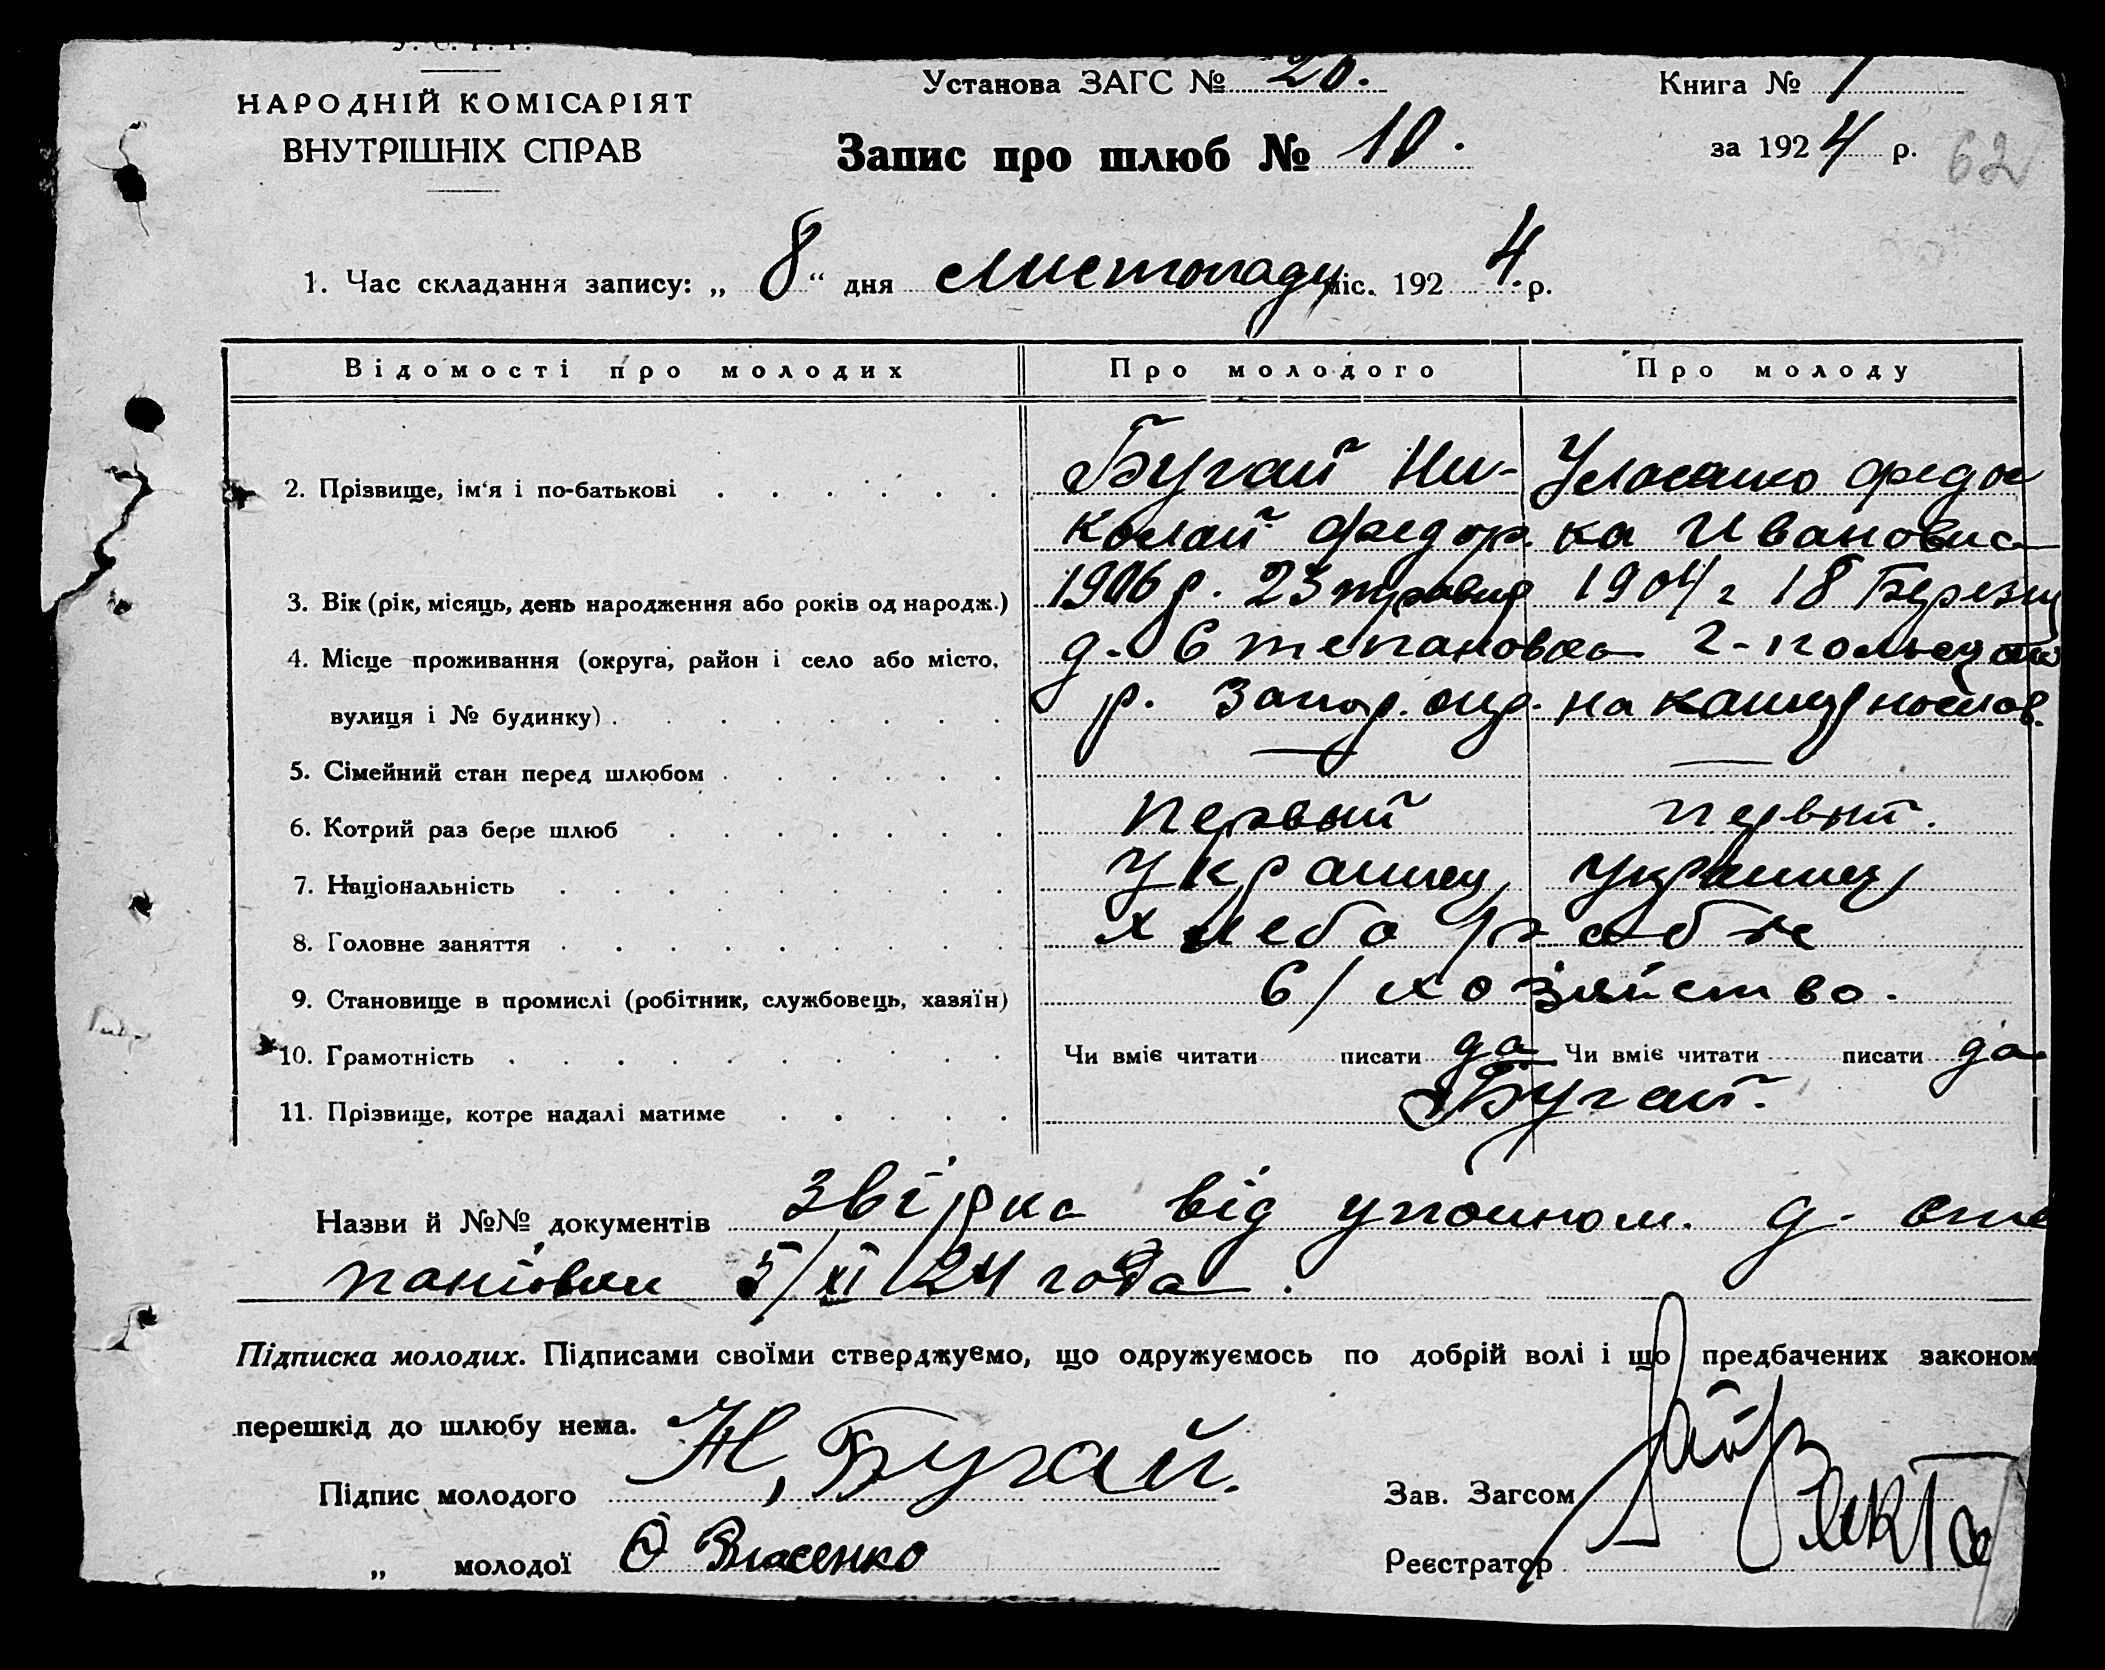 У. С. Р. Р.
НАРОДНІЙ КОМІСАРІЯТ
ВНУТРІШНІХ СПРАВ
Установа ЗАГС № 20.
Книга № 1
Запис про шлюб № 10.
за 1924 р.
62
1. Час складання запису: „ 8 “ дня листопаду міс. 1924. р.
Відомості про молодих Про молодого Про молоду
2. Прізвище, ім‘я і по-батькові Бугай Ни- Уласенко Федос
колай Федор. ка Ивановна
3. Вік (рік, місяць, день народження або років од народж.) 1906 р. 23 травня 1904 г 18 Березня
4. Місце проживання (округа, район і село або місто, д. Степановка
вулиця і № будинку) р. Запор. окр.
5. Сімейний стан перед шлюбом — —
6. Котрий раз бере шлюб первый первый.
7. Національність украинец украинец
8. Головне заняття хлебо
9. Становище в промислі (робітник, службовець, хазяїн) с/хозяйство.
10. Грамотність Чи вміє читати писати да Чи вміє читати писати да
11. Прізвище, котре надалі матиме Бугай.
Назви й №№ документів від уповном. д. Сте
пановки 5/XI 24 года.
Підписка молодих. Підписами своїми стверджуємо, що одружуємось по добрій волі і що предбачених законом
перешкід до шлюбу нема.
Підпис молодого Н. Бугай.
Зав. Загсом
„ молодої Ф Власенко
Реєстратор